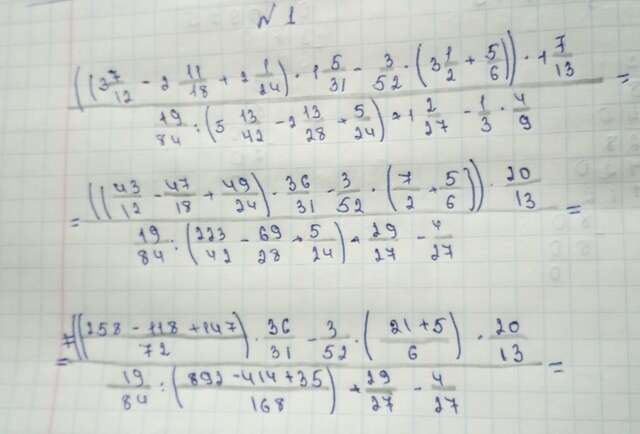 № 1
((3 7/12 - 2 11/18 + 2 1/24) · 1 5/31 - 3/52 · (3 1/2 + 5/6)) · 1 7/13
19/84 : (5 13/42 - 2 13/28 + 5/24) + 1 2/27 - 1/3 · 4/9 =
= ((43/12 - 47/18 + 49/24) · 36/31 - 3/52 · (7/2 + 5/6)) · 20/13
19/84 : (223/42 - 69/28 + 5/24) + 29/27 - 4/27 =
= ((258 - 118 + 147/72) · 36/31 - 3/52 · (21 + 5/6) · 20/13
19/84 : (892 - 414 + 35/168) + 29/27 - 4/27 =